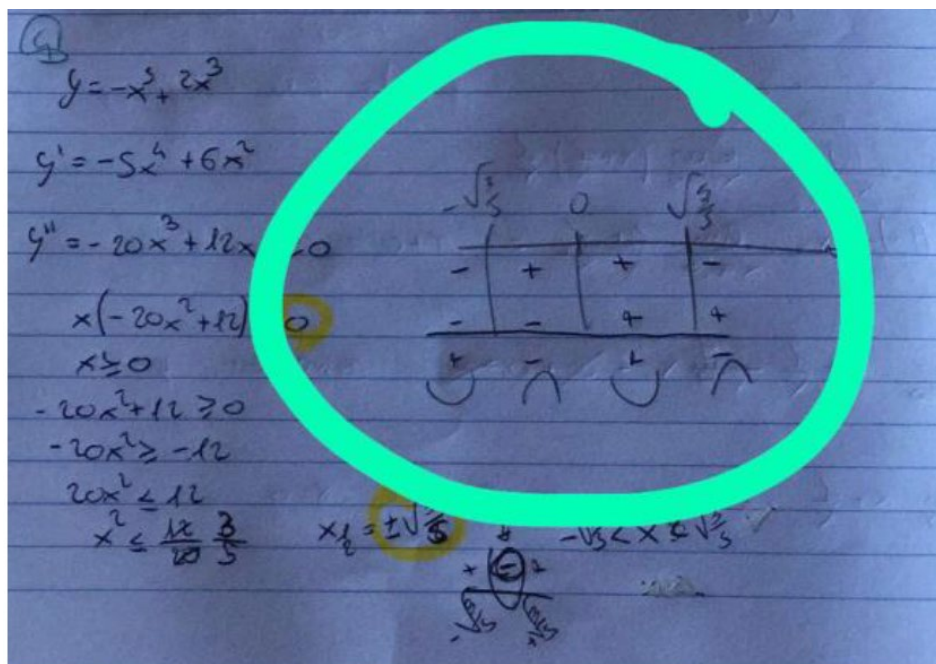 y = -x⁵ + 2x³
y' = -5x⁴ + 6x²
y'' = -20x³ + 12x 0
x(-20x² + 12) 0
x ≥ 0
-20x² + 12 ≥ 0
-20x² ≥ -12
20x² ≤ 12
x² ≤ 12/20 3/5
x½ = ±√3/5
-√3/5 0 √3/5
- + + -
- - + +
+ - + -
+ - +